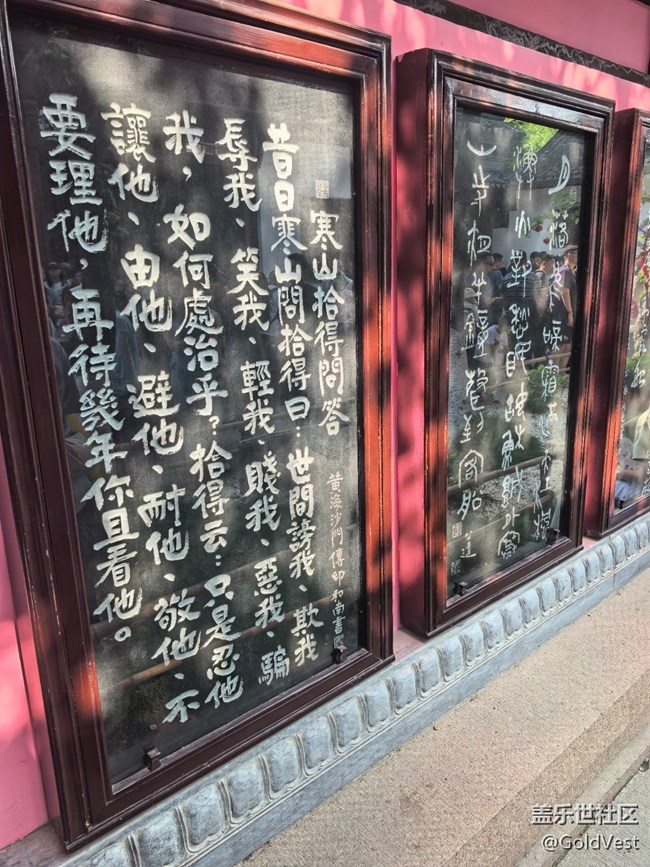 寒山拾得問答
黄海沙門傳印和南書
昔日寒山問拾得曰：世間謗我、欺我
辱我、笑我、輕我、賤我、惡我、騙
我，如何處治乎？拾得云：只是忍他
讓他、由他、避他、耐他、敬他、不
要理他，再待幾年你且看他。
月落烏啼霜滿天江楓
漁火對愁眠姑蘇城外寒
山寺夜半鐘聲到客船
盖乐世社区
@GoldVest